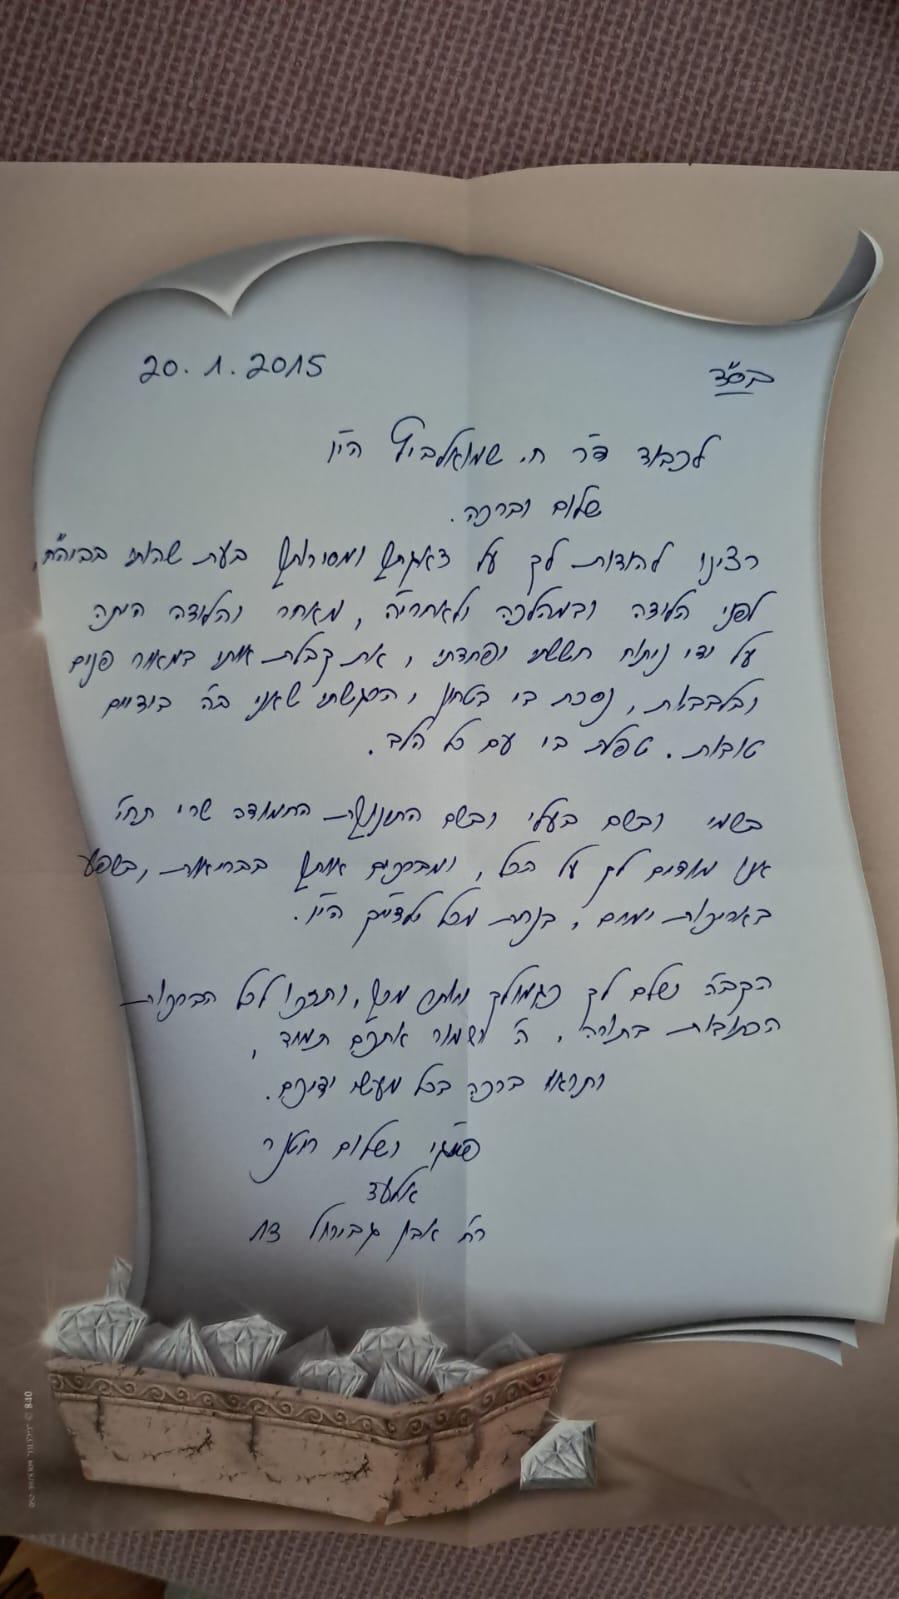 בס"ד 20.1.2015
לכבוד ד"ר ח. שמואלביץ הי"ו
שלום וברכה.
רצינו להודות לך על דאגתך ומסירותך בעת שהותי בביה"ח,
לפני הלידה ובמהלכה ולאחריה, מאחר והלידה היתה
על ידי ניתוח חששתי ופחדתי, את קבלת אותי במאור פנים
ובלבביות, נסכת בי בטחון, הרגשתי שאני בה' בידיים
טובות. טפלת בי עם כל הלב.
בשמי ובשם בעלי ובשם התינוקת החמודה שרי תחי'
אנו מודים לך על הכל, ומברכים אותך בבריאות, בשפע
באריכות ימים, בנחת מכל ילדייך הי"ו.
הקב"ה ישלם לך כגמולך הטוב, ותזכו לכל הברכות
הכתובות בתורה, ה' ישמור אתכם תמיד,
ותראו ברכה בכל מעשי ידיכם.
ושלום
אלעד
רח' אבן גבירול
840 ©